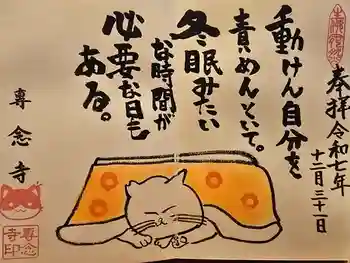 奉拝 令和七年
十二月三十一日
動けん自分を
責めんといて。
冬眠みたい
な時間が
必要な日も
ある。
専念寺
専念
寺印